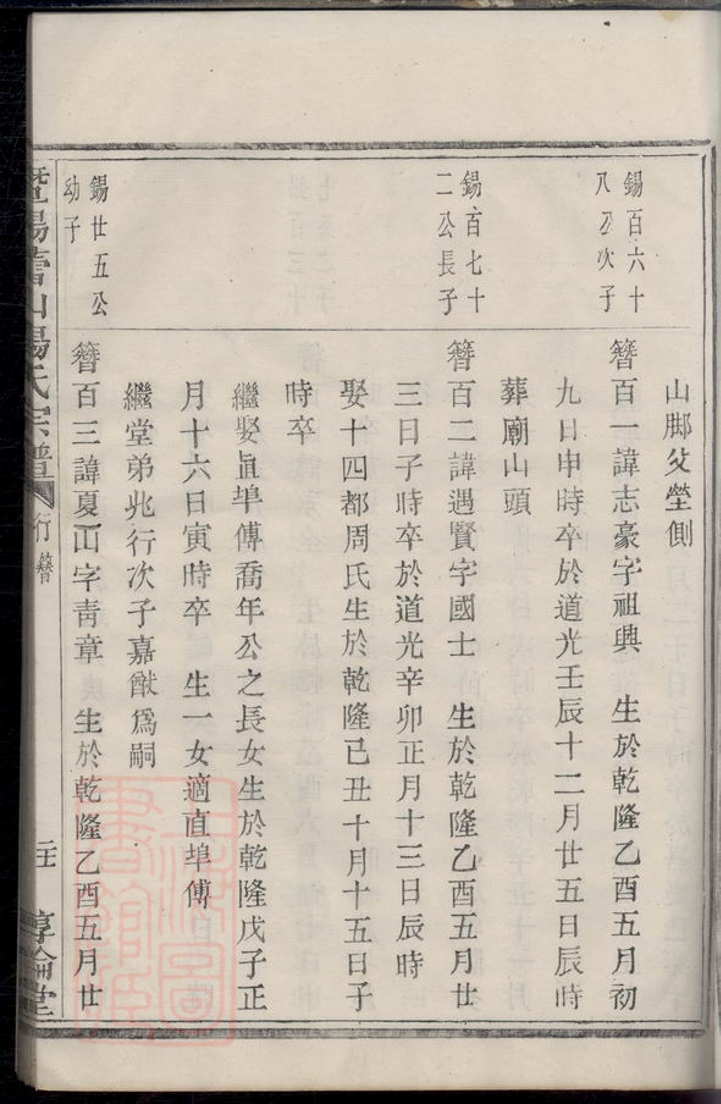 山脚父塋側
錫百六十
八公次子
簪百一諱志豪字祖興　生於乾隆乙酉五月初
九日申時卒於道光壬辰十二月廿五日辰時
葬廟山頭
錫百七十
二公長子
簪百二諱遇賢字國士　生於乾隆乙酉五月廿
三日子時卒於道光辛卯正月十三日辰時
娶十四都周氏生於乾隆己丑十月十五日子
時卒
繼娶直埠傅喬年公之長女生於乾隆戊子正
月十六日寅時卒　生一女適直埠傅
繼堂弟兆行次子嘉猷為嗣
錫廿五公
幼子
簪百三諱夏字靑章　生於乾隆乙酉五月廿
暨陽山楊氏宗譜
行簪
惇倫堂